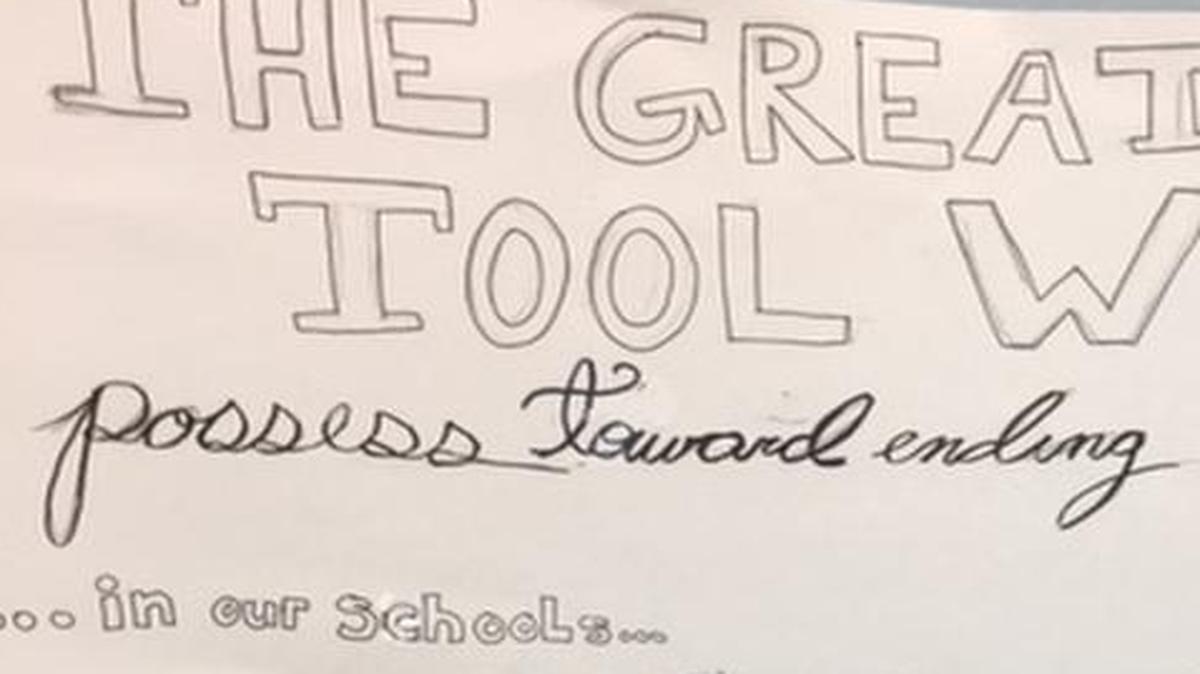 THE GREAT
TOOL W
possess toward ending
... in our schools...